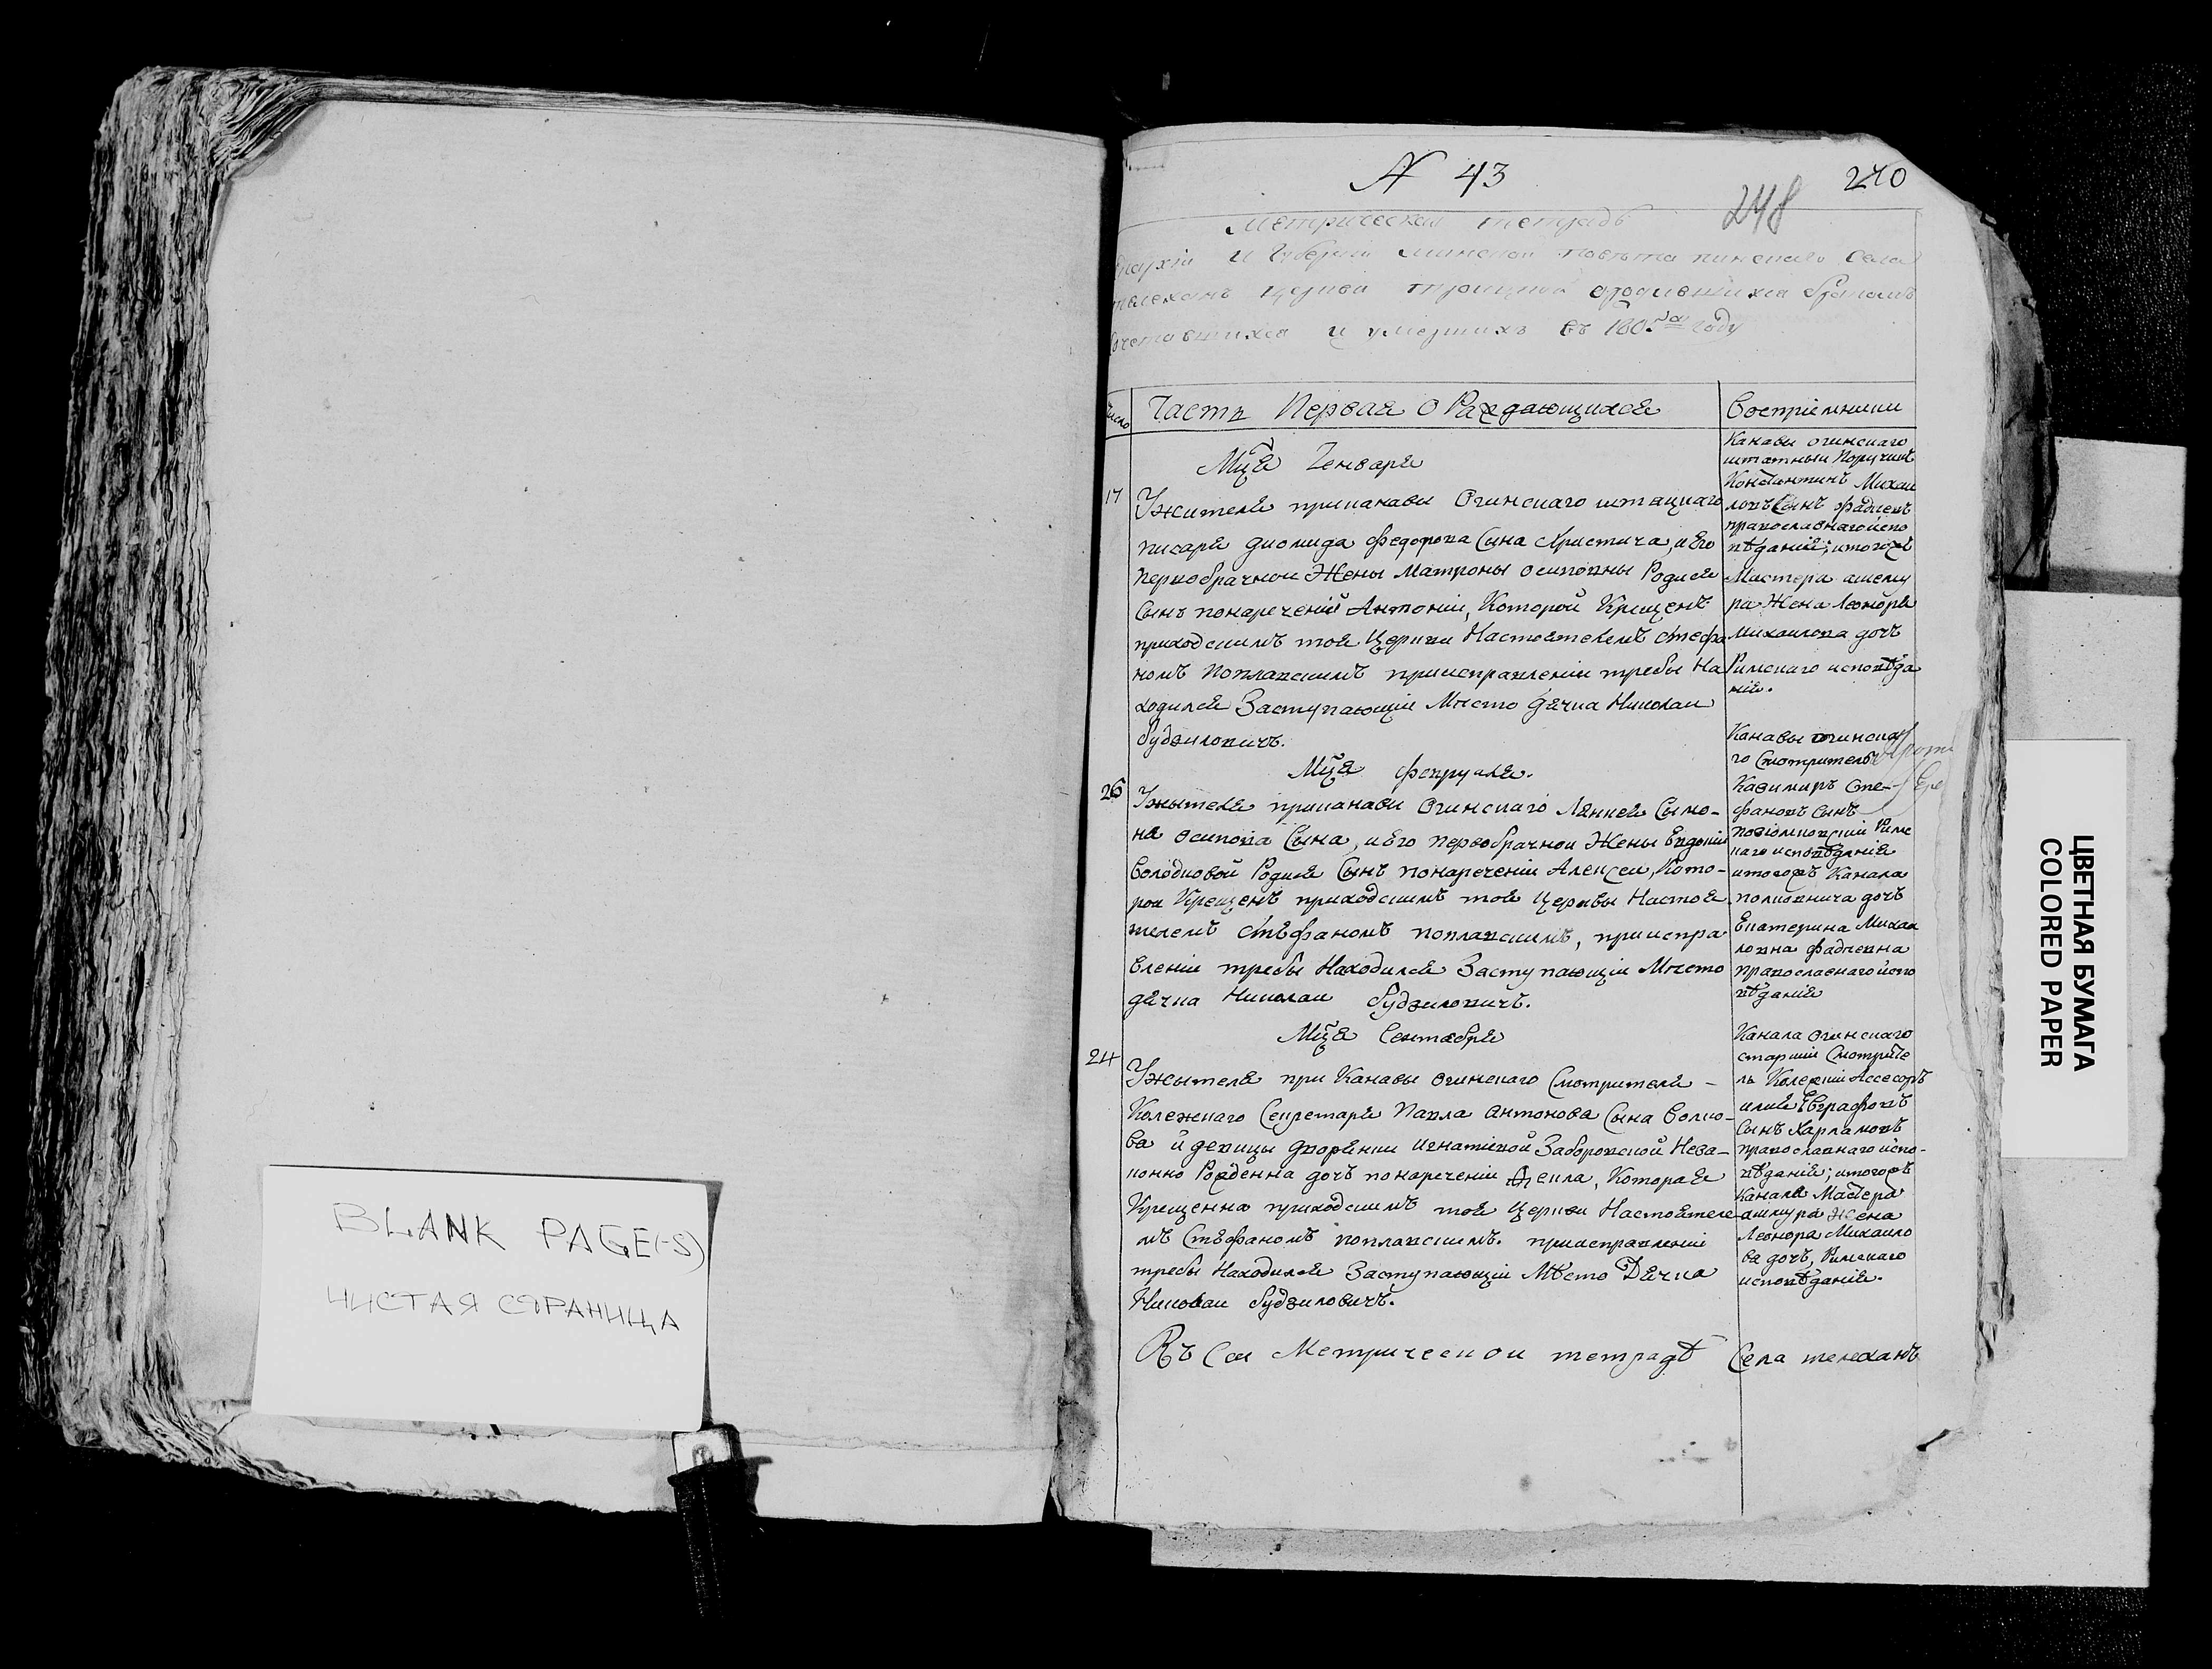 BLANK PAGE(-S)
ЧИСТАЯ СТРАНИЦА
N 43
240
248
Метрическая тетрадь
и Губернiи минской повѣта пинскаго Села
церкви троицкой
и умершихъ въ году
Число
Часть Первая О Раждающихся
Воспрiемники
Мц̃а Генваря
17
Ужителя приканавы Огинскаго штацкаго
писаря диомида Федорова Сына Христича, и Его
первобрачнои Жены Матроны осиповны Родися
Сынъ понареченiй Антонiи, Которои Крещенъ
приходскимъ тоя Церкви Настоятелемъ стефа
номъ поплавскимъ приисправленiи требы На
ходился Заступающiи Мѣсто дячка Николаи
будзиловичъ.
Канавы огинскаго
штатныи Поручикъ
Константинъ Михаи
ловъ Сынъ Фадѣевъ
православнагоиспо
вѣданiя; итогожъ
Мастера ашму
ра Жена Леонора
Михаилова дочъ
Римскаго исповѣда
нiя.
Мц̃а февруаля.
26
Ужытеля приканавы Огинскаго Сымо-
на осипова Сына, иЕго первобрачнои Жены Евдокiи
Родися Сынъ понареченiи Алексеи, Кото-
рои Крещенъ приходскимъ тоя Церквы Настоя
телемъ Стѣфаномъ поплавскимъ, приисправ
вленiи требы Находился Заступающiи Мѣсто
дячка Николаи будзиловичъ.
Канавы огинска
го Смотритель
Казимиръ Сте-
фановъ Сынъ
Римс
каго исповѣданiя
итогожъ Канала
полковника дочъ
Екатерина Михаи
ловна Фадѣевна
православнагоиспо
вѣданiя
Мц̃а Сентября
24
Ужытеля при Канавы Огинскаго Смотрителя -
Колежнаго Секретаря Павла антонова Сына Волко-
ва и девицы дворянки игнатiвой Заборовской Неза-
конно Рожденна дочъ понареченiи Фекла, Которая
Крещенна приходскимъ тоя Церкви Настоятеле
мъ Стѣфаномъ поплавскимъ. приисправленiи
требы Находился Заступающiи Мѣсто Дячка
Николаи будзиловичъ.
Канала Огинскаго
старшiи Смотрите
ль Колежiи Ассесоръ
илия Евграфовъ
Сынъ Харламовъ
православнагоиспо-
вѣданiя; итогожъ
Канала Мастера
ашмура Жена
Леонора Михаило
ва дочъ, Римскаго
исповѣданiя.
Въ Сеи Метрическои тетрадѣ Села телеханъ
ЦВЕТНАЯ БУМАГА
COLORED PAPER